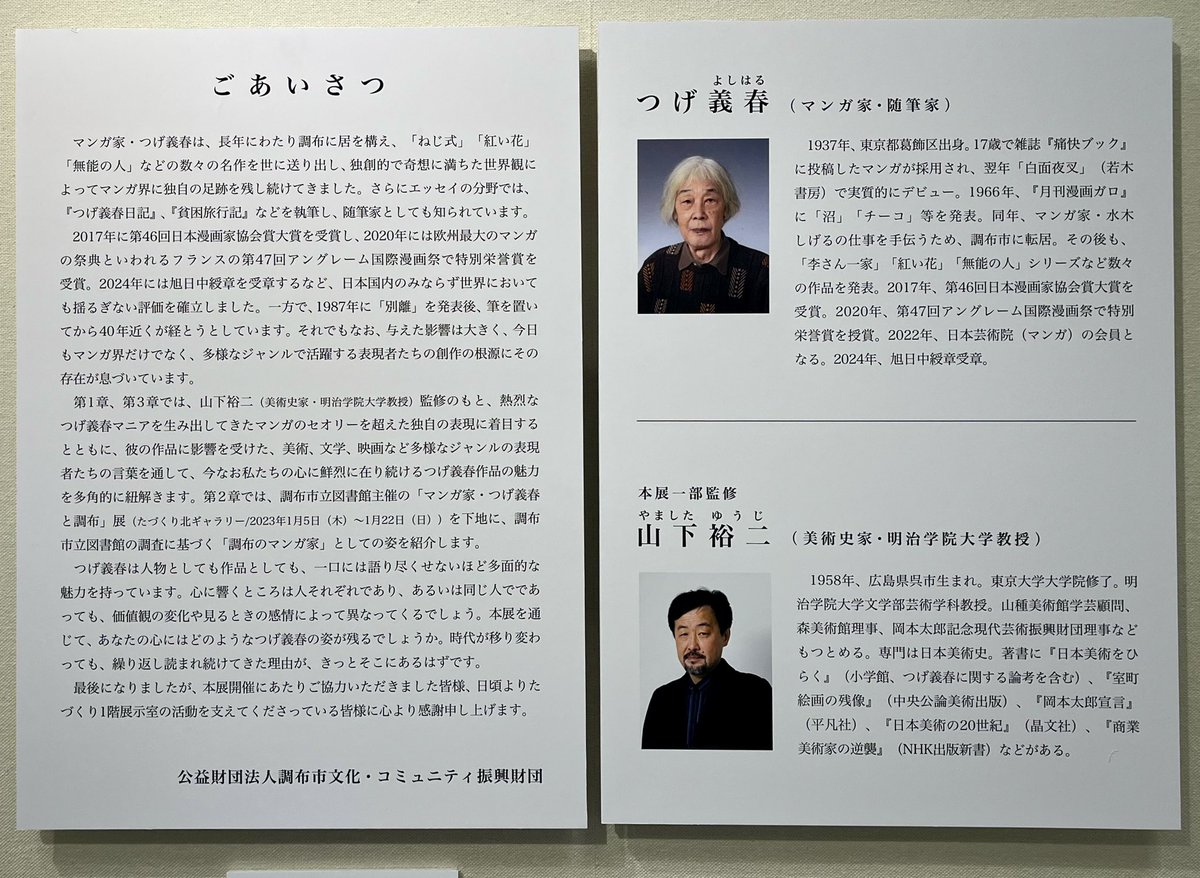 ごあいさつ
マンガ家・つげ義春は、長年にわたり調布に居を構え、「ねじ式」「紅い花」
「無能の人」などの数々の名作を世に送り出し、独創的で奇想に満ちた世界観に
よってマンガ界に独自の足跡を残し続けてきました。さらにエッセイの分野では、
『つげ義春日記』、『貧困旅行記』などを執筆し、随筆家としても知られています。
2017年に第46回日本漫画家協会賞大賞を受賞し、2020年には欧州最大のマンガ
の祭典といわれるフランスの第47回アングレーム国際漫画祭で特別栄誉賞を
受賞。2024年には旭日中綬章を受章するなど、日本国内のみならず世界において
も揺るぎない評価を確立しました。一方で、1987年に「別離」を発表後、筆を置い
てから40年近くが経とうとしています。それでもなお、与えた影響は大きく、今日
もマンガ界だけでなく、多様なジャンルで活躍する表現者たちの創作の根源にその
存在が息づいています。
第1章、第3章では、山下裕二（美術史家・明治学院大学教授）監修のもと、熱烈な
つげ義春マニアを生み出してきたマンガのセオリーを超えた独自の表現に着目する
とともに、彼の作品に影響を受けた、美術、文学、映画など多様なジャンルの表現
者たちの言葉を通して、今なお私たちの心に鮮烈に在り続けるつげ義春作品の魅力
を多角的に紐解きます。第2章では、調布市立図書館主催の「マンガ家・つげ義春
と調布」展（たづくり北ギャラリー/2023年1月5日（木）〜1月22日（日））を下地に、調布
市立図書館の調査に基づく「調布のマンガ家」としての姿を紹介します。
つげ義春は人物としても作品としても、一口には語り尽くせないほど多面的な
魅力を持っています。心に響くところは人それぞれであり、あるいは同じ人でであ
っても、価値観の変化や見るときの感情によって異なってくるでしょう。本展を通
じて、あなたの心にはどのようなつげ義春の姿が残るでしょうか。時代が移り変わ
っても、繰り返し読まれ続けてきた理由が、きっとそこにあるはずです。
最後になりましたが、本展開催にあたりご協力いただきました皆様、日頃よりた
づくり1階展示室の活動を支えてくださっている皆様に心より感謝申し上げます。
公益財団法人調布市文化・コミュニティ振興財団
よしはる
つげ義春（マンガ家・随筆家）
1937年、東京都葛飾区出身。17歳で雑誌『痛快ブック』
に投稿したマンガが採用され、翌年「白面夜叉」（若木
書房）で実質的にデビュー。1966年、『月刊漫画ガロ』
に「沼」「チーコ」等を発表。同年、マンガ家・水木
しげるの仕事を手伝うため、調布市に転居。その後も、
「李さん一家」「紅い花」「無能の人」シリーズなど数々
の作品を発表。2017年、第46回日本漫画家協会賞大賞を
受賞。2020年、第47回アングレーム国際漫画祭で特別
栄誉賞を授賞。2022年、日本芸術院（マンガ）の会員と
なる。2024年、旭日中綬章受章。
本展一部監修
やました ゆうじ
山下裕二（美術史家・明治学院大学教授）
1958年、広島県呉市生まれ。東京大学大学院修了。明
治学院大学文学部芸術学科教授。山種美術館学芸顧問、
森美術館理事、岡本太郎記念現代芸術振興財団理事など
もつとめる。専門は日本美術史。著書に『日本美術をひ
らく』（小学館、つげ義春に関する論考を含む）、『室町
絵画の残像』（中央公論美術出版）、『岡本太郎宣言』
（平凡社）、『日本美術の20世紀』（晶文社）、『商業
美術家の逆襲』（NHK出版新書）などがある。